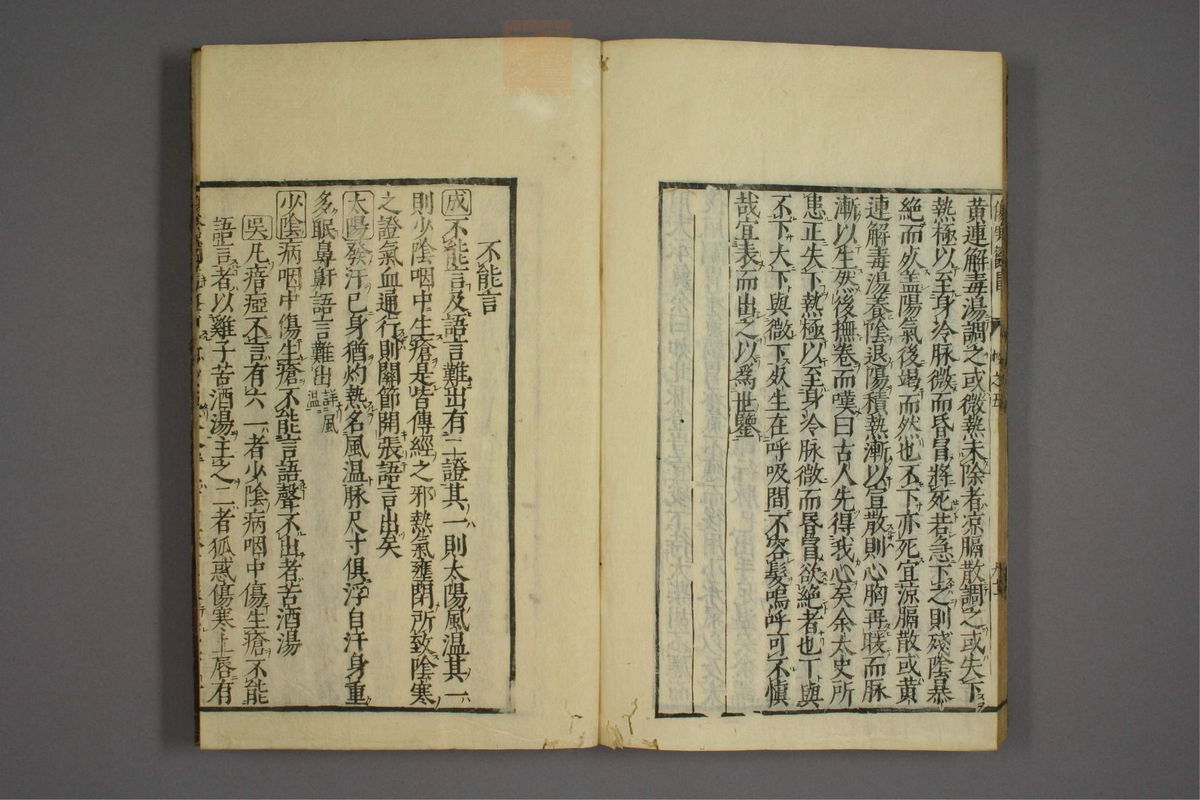 黄連解毒湯調之或微熱未除者凉膈散調之或失下
熱極以至身冷脉微而昏冒將死若急下之則殘陰暴
絶而死盖陽氣後竭而然也不下亦死宜凉膈散或黄
連解毒湯養陰退陽積熱漸以宣散則心胸再暖而脉
漸以生然後撫卷而嘆曰古人先得我心矣余太史所
患正失下熱極以至身冷脉微而昏冒欲絶者也下與
不下大下與微下死生在呼吸間不容髮嗚呼可不慎
哉宜表而出之以爲世鑒
不能言
成不能言及語言難出有二證其一則太陽風温其一
則少陰咽中生瘡是皆傳經之邪熱氣壅閉所致陰寒
之證氣血通行則關節開張語言出矣
太陽發汗已身猶灼熱名風温脉尺寸俱浮自汗身重
多眠鼻鼾語言難出詳風温
少陰病咽中傷生瘡不能言語聲不出者苦酒湯
吳凡瘖瘂不言有六一者少陰病咽中傷生瘡不能
語言者以雞子苦酒湯主之二者狐惑傷寒上唇有